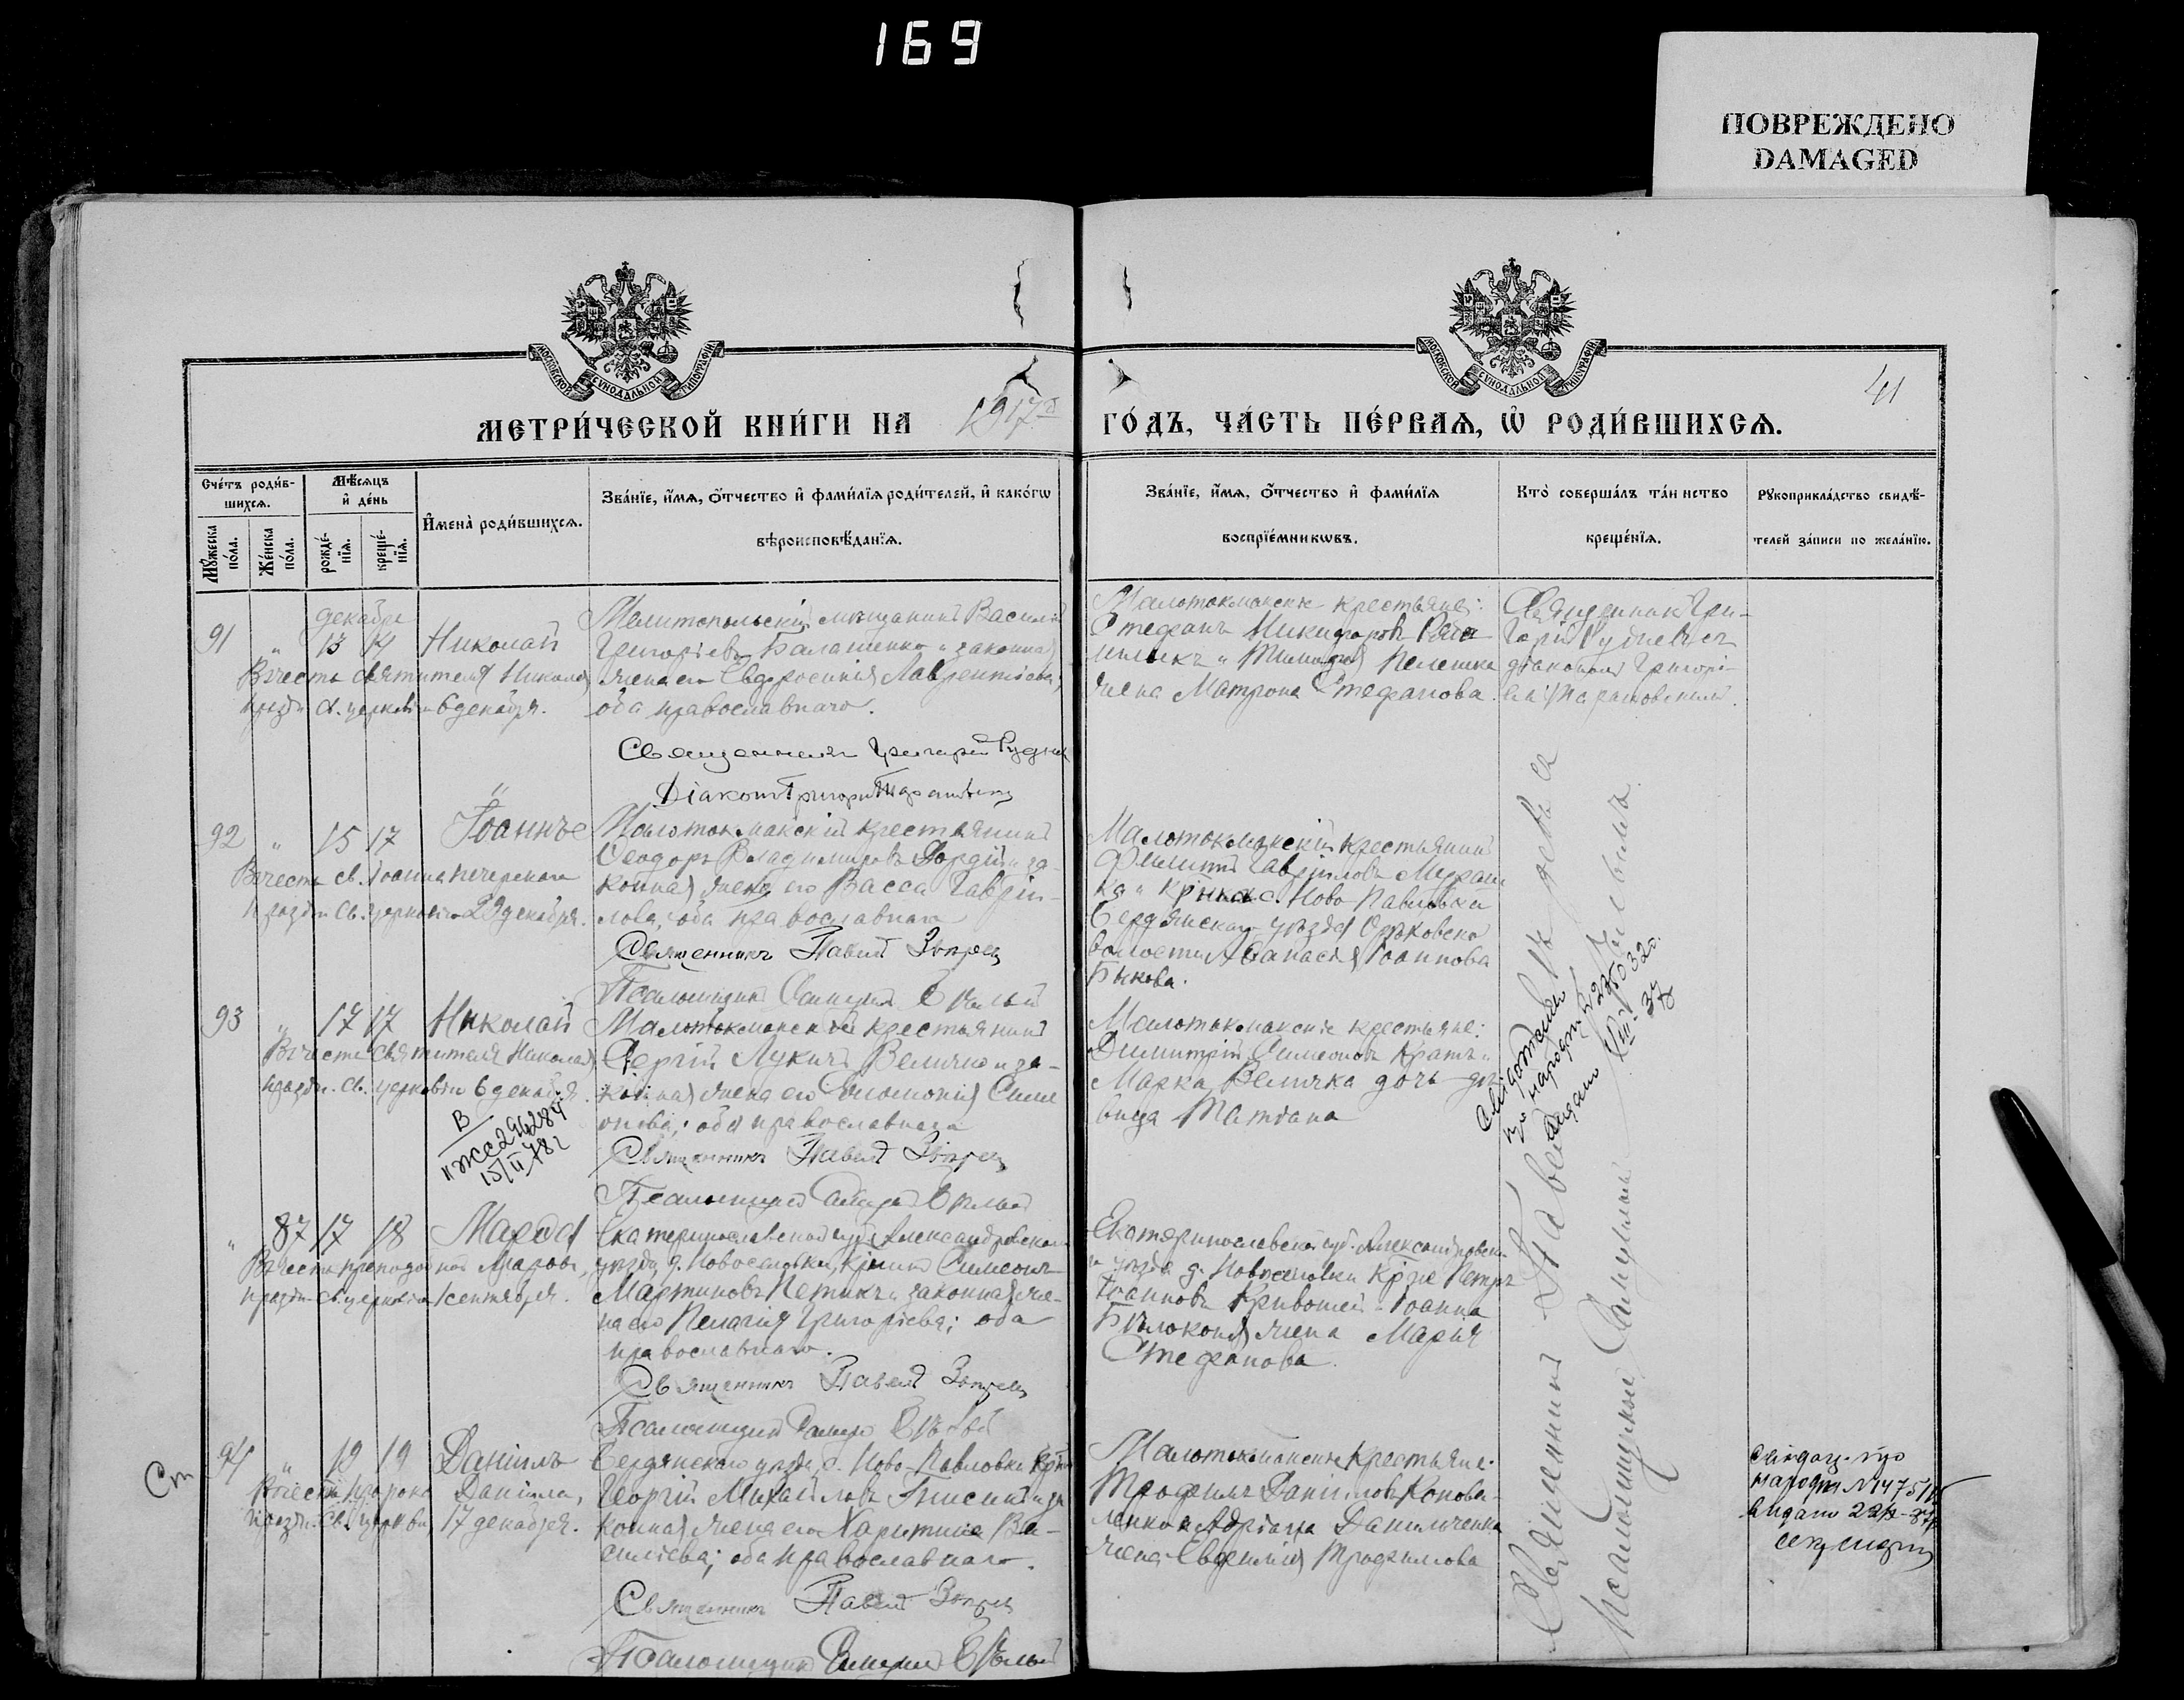 169
ПОВРЕЖДЕНО
DAMAGED
МОСКОВСКОЙ СѴНОДАЛЬНОЙ ТИПОГРАФІИ
МОСКОВСКОЙ СѴНОДАЛЬНОЙ ТИПОГРАФІИ
41
МЕТРИ́ЧЕСКОЙ КНИ́ГИ НА 1917 ГО́ДЪ, ЧА́СТЬ ПЕ́РВАЯ, Ѡ РОДИ́ВШИХСЯ.
Сче́тъ роди́в-
шихся.
Му́жеска по́ла.
Же́нска по́ла.
Мѣ́сяцъ
и де́нь
рожде́-
нїя.
креще́-
нїя.
Имена̀ роди́вшихся.
Зва́нїе, и́мя, о́тчество и фами́лїя роди́телей, и како́гѡ
вѣроисповѣ́данїя.
Зва́нїе, и́мя, о́тчество и фами́лїя
воспрїе́мникѡвъ.
Кто̀ соверша́лъ та́инство
креще́нїя.
Рукоприкла́дство свидѣ́-
телей за́писи по жела́нїю.
91 " декабря 13 14 Николай
Въ честь святителя Николая
празд. св. церковію 6 декабря.
Мелитопольскій мѣщанинъ Василій
Григоріевъ Балашенко и законная
жена его Евфросинія Лаврентіева,
оба православнаго.
Священникъ Григорій
Діаконъ Григорій
Малотокмакскіе крестьяне:
Стефанъ Никифоровъ
и Тимофея
жена Матрона Стефанова.
Священникъ Гри-
горій съ
діакономъ Григорі-
емъ
92 " 15 17 Іоаннъ
Въ честь св. Іоанна печерскаго
празд. св. церковію 29 декабря.
Малотокмакскій крестьянинъ
Ѳеодоръ Владимировъ Гордій и за-
конная жена его Васса Гавріи-
лова, оба православнаго
Священникъ Павелъ
Псаломщикъ
Малотокмакскій крестьянинъ
Филиппъ Гавріиловъ Мураш
ка и кр-нка с. Ново Павловки
Бердянскаго уѣзда Орѣховской
волости Аѳанасія Іоаннова
Быкова.
93 " 17 17 Николай
Въ честь святителя Николая
празд. св. церковію 6 декабря.
Малотокмакскій крестьянинъ
Сергій Лукичъ Величко и за-
конная жена его Соломонія Симе
онова; оба православнаго
Священникъ Павелъ
Псаломщикъ
Малотокмакскіе крестьяне:
Димитрій Симеоновъ Кратъ и
Марка Величка дочь дѣ-
вица Татіана
В
15/II
" 87 17 18 Марѳа
Въ честь преподобной Марѳы,
празд. св. церковію 1 сентября.
Екатеринославской губ. Александровскаго
уѣзда, д. Новоселовки, кр-нинъ Симеонъ
Мартиновъ Петикъ и законная же-
на его Пелагія Григоріева; оба
православнаго.
Священникъ Павелъ
Псаломщикъ
Екатеринославской губ. Александровска-
го уѣзда д. Новоселовки кр-не Петръ
Іоанновъ Кривошей и Іоанна
Бѣлоконя жена Марія
Стефанова.
94 " 19 19 Даніилъ
Въ честь пророка Даніила,
празд. св. церковію 17 декабря.
Бердянскаго уѣзда, с. Ново-Павловки
Георгій Михайловъ и за
конная жена его Харитина Ва-
силіева; оба православнаго.
Священникъ Павелъ
Псаломщикъ
Малотокмакскіе крестьяне:
Трофимъ Даніиловъ Конова-
ленко и Адріана Данильченка
жена Евфимія Трофимова
Священникъ Павелъ
Псаломщикъ